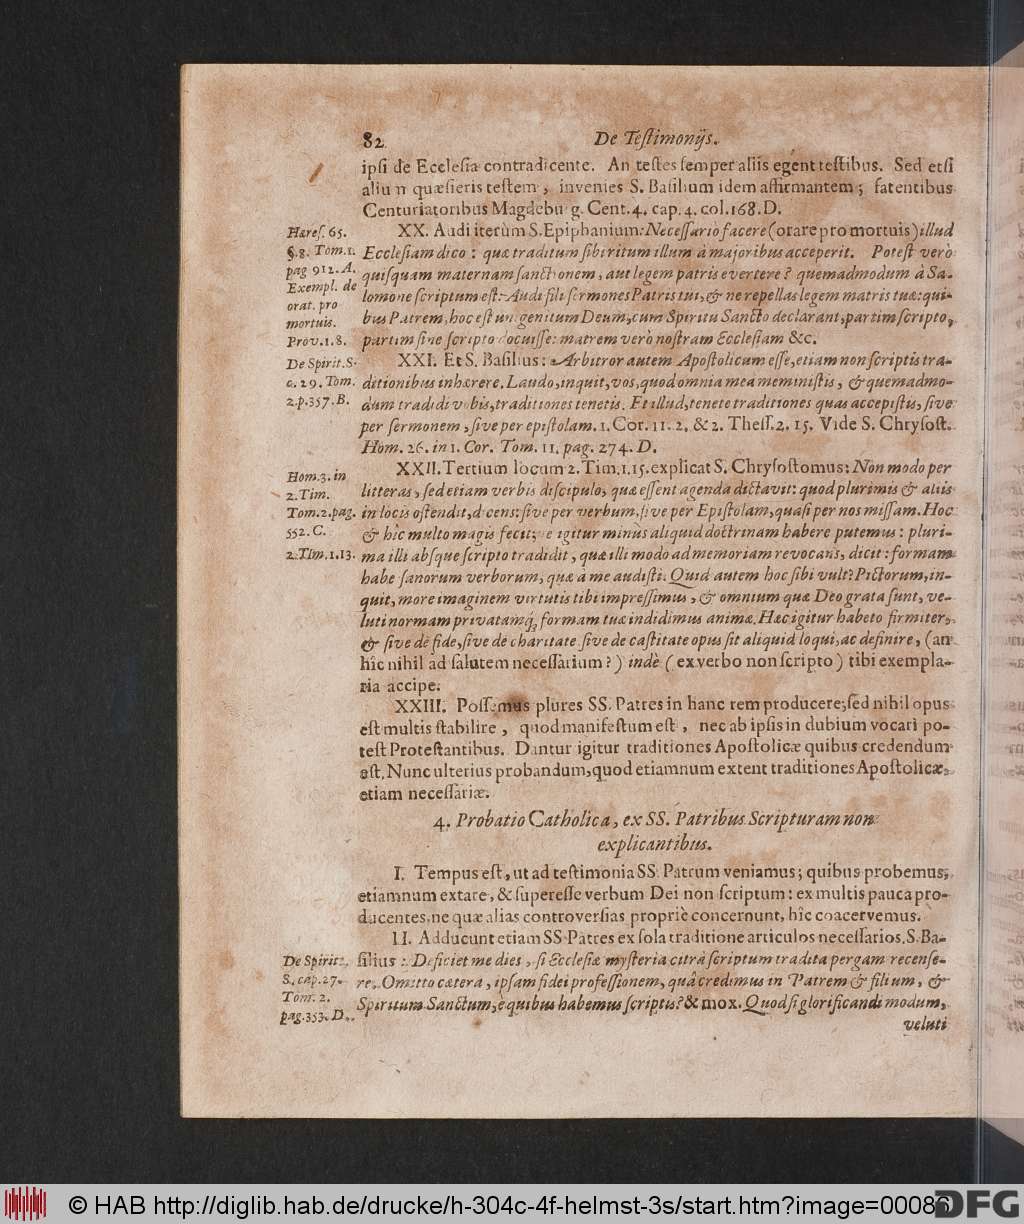 82
De Teſtimonijs.
ipſi de Eccleſia contradicente. An teſtes ſemper aliis egent teſtibus. Sed etſi
aliu n quæſieris teſtem, invenies S. Baſilium idem affirmantem; fatentibus
Centuriatoribus Magdebu g. Cent. 4. cap. 4. col. 168. D.
Hæreſ. 65.
§. 8. Tom. 1.
pag 912. A.
Exempl. de
orat. pro
mortuis.
Prov. 1. 8.
XX. Audi iterùm S. Epiphanium: Neceſſariò facere (orare pro mortuis) illud
Eccleſiam dico: quæ traditum ſibi ritum illum à majoribus acceperit. Poteſt verò
quiſquam maternam ſanctionem, aut legem patris evertere? quemadmodum à Sa-
lomone ſcriptum eſt: Audi fili ſermones Patris tui, & ne repellas legem matris tuæ: qui-
bus Patrem, hoc eſt unigenitum Deum, cum Spiritu Sancto declarant, partim ſcripto,
partim ſine ſcripto docuiſſe: matrem verò noſtram Eccleſiam &c.
De Spirit. S.
c. 29. Tom.
2. p. 357. B.
XXI. Et S. Baſilius: Arbitror autem Apoſtolicum eſſe, etiam non ſcriptis tra-
ditionibus inhærere. Laudo, inquit, vos, quod omnia mea meminiſtis, & quemadmo-
dum tradidi vobis, traditiones tenetis. Et illud, tenete traditiones quas accepiſtis, ſive
per ſermonem, ſive per epiſtolam. 1. Cor. 11. 2. & 2. Theſſ. 2. 15. Vide S. Chryſoſt.
Hom. 26. in 1. Cor. Tom. 11. pag. 274. D.
Hom. 3. in
2. Tim.
Tom. 2. pag.
552. C.
2. Tim. 1. 13.
XXII. Tertium locum 2. Tim. 1. 15. explicat S. Chryſoſtomus: Non modo per
litteras, ſed etiam verbis diſcipulo, quæ eſſent agenda dictavit: quod plurimis & aliis
in locis oſtendit, dicens: ſive per verbum, ſive per Epiſtolam, quaſi per nos miſſam. Hoc
& hîc multo magis fecit; igitur minùs aliquid doctrinam habere putemus: pluri-
ma illi abſque ſcripto tradidit, quæ illi modo ad memoriam revocans, dicit: formam
habe ſanorum verborum, quæ à me audiſti. Quid autem hoc ſibi vult? Pictorum, in-
quit, more imaginem virtutis tibi impreſſimus, & omnium quæ Deo grata ſunt, ve-
luti normam privatamq́; formam tuæ indidimus animæ. Hæc igitur habeto firmiter,
& ſive de fide, ſive de charitate ſive de caſtitate opus ſit aliquid loqui, ac definire, (an
hîc nihil ad ſalutem neceſſarium?) indè (ex verbo non ſcripto) tibi exempla-
ria accipe.
XXIII. Poſſemus plures SS. Patres in hanc rem producere; ſed nihil opus
eſt multis ſtabilire, quod manifeſtum eſt, nec ab ipſis in dubium vocari po-
teſt Proteſtantibus. Dantur igitur traditiones Apoſtolicæ quibus credendum
eſt. Nunc ulterius probandum, quod etiamnum extent traditiones Apoſtolicæ,
etiam neceſſariæ.
4. Probatio Catholica, ex SS. Patribus Scripturam non
explicantibus.
I. Tempus eſt, ut ad teſtimonia SS. Patrum veniamus; quibus probemus,
etiamnum extare, & ſupereſſe verbum Dei non ſcriptum: ex multis pauca pro-
ducentes, ne quæ alias controverſias propriè concernunt, hîc coacervemus.
De Spirit.
S. cap. 27.
Tom. 2.
pag. 353. D.
II. Adducunt etiam SS. Patres ex ſola traditione articulos neceſſarios. S. Ba-
ſilius: Deficiet me dies, ſi Eccleſiæ myſteria citrà ſcriptum tradita pergam recenſe-
re. Omitto cætera, ipſam fidei profeſſionem, quâ credimus in Patrem & filium, &
Spiritum Sanctum, è quibus habemus ſcriptis? & mox. Quod ſi glorificandi modum,
veluti
© HAB http://diglib.hab.de/drucke/h-304c-4f-helmst-3s/start.htm?image=00086
DFG